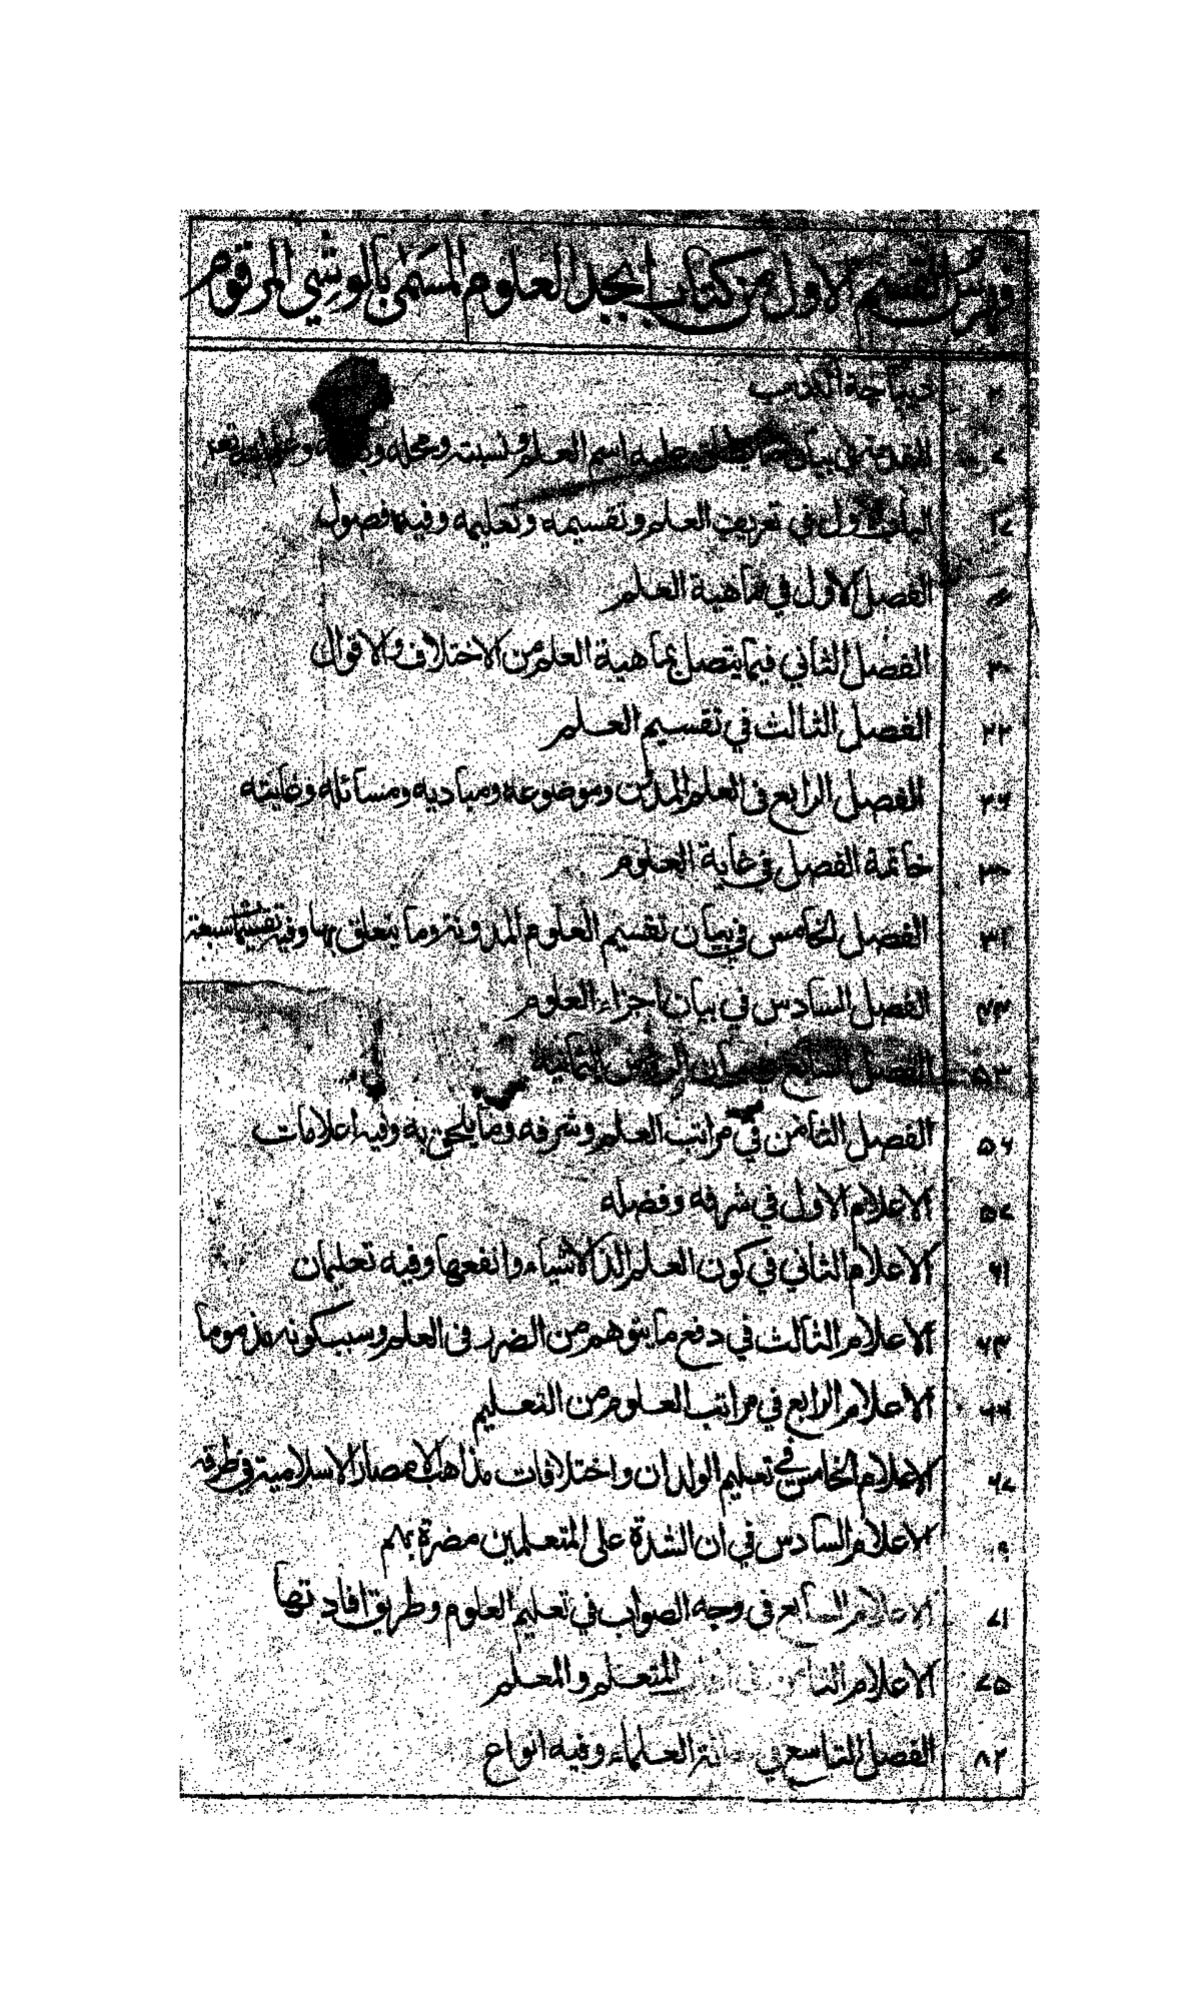 فهرس القسم الاول من كتاب ابجد العلوم المسمى بالوشي المرقوم
٢ ديباجة الكتاب
المقدمة في بيان ما يطلق عليه اسم العلم ونسبته ومحله
الباب الاول في تعريف العلم وتقسيمه وتعليمه وفيه فصول
الفصل الاول في ماهية العلم
٢٠ الفصل الثاني فيما يتصل بماهية العلم من الاختلاف والاقوال
٢٢ الفصل الثالث في تقسيم العلم
٢٦ الفصل الرابع في العلم المدون وموضوعه ومباديه ومسائله وغايته
٣٠ خاتمة الفصل في غاية العلوم
٣١ الفصل الخامس في بيان تقسيم العلوم المدونة وما يتعلق بها وفيه تقسيمات سبعة
٤٣ الفصل السادس في بيان اجزاء العلوم
٥٣ الفصل السابع في بيان الرؤس الثمانية
٥٦ الفصل الثامن في مراتب العلم وشرفه وما يلحق به وفيه اعلامات
٥٧ الاعلام الاول في شرفه وفضله
٦١ الاعلام الثاني في كون العلم الذ الاشياء وانفعها وفيه تعليمان
٦٣ الاعلام الثالث في دفع ما يتوهم من الضرر في العلم وسبب كونه مذموما
٦٦ الاعلام الرابع في مراتب العلوم من التعليم
٦٧ الاعلام الخامس في تعليم الولدان واختلافات مذاهب الامصار الاسلامية في طرقه
الاعلام السادس في ان الشدة على المتعلمين مضرة بهم
٧١ الاعلام السابع في وجه الصواب في تعليم العلوم وطريق افادتها
٧٥ الاعلام المتعلم والمعلم
٨٢ الفصل التاسع في العلماء وفيه انواع